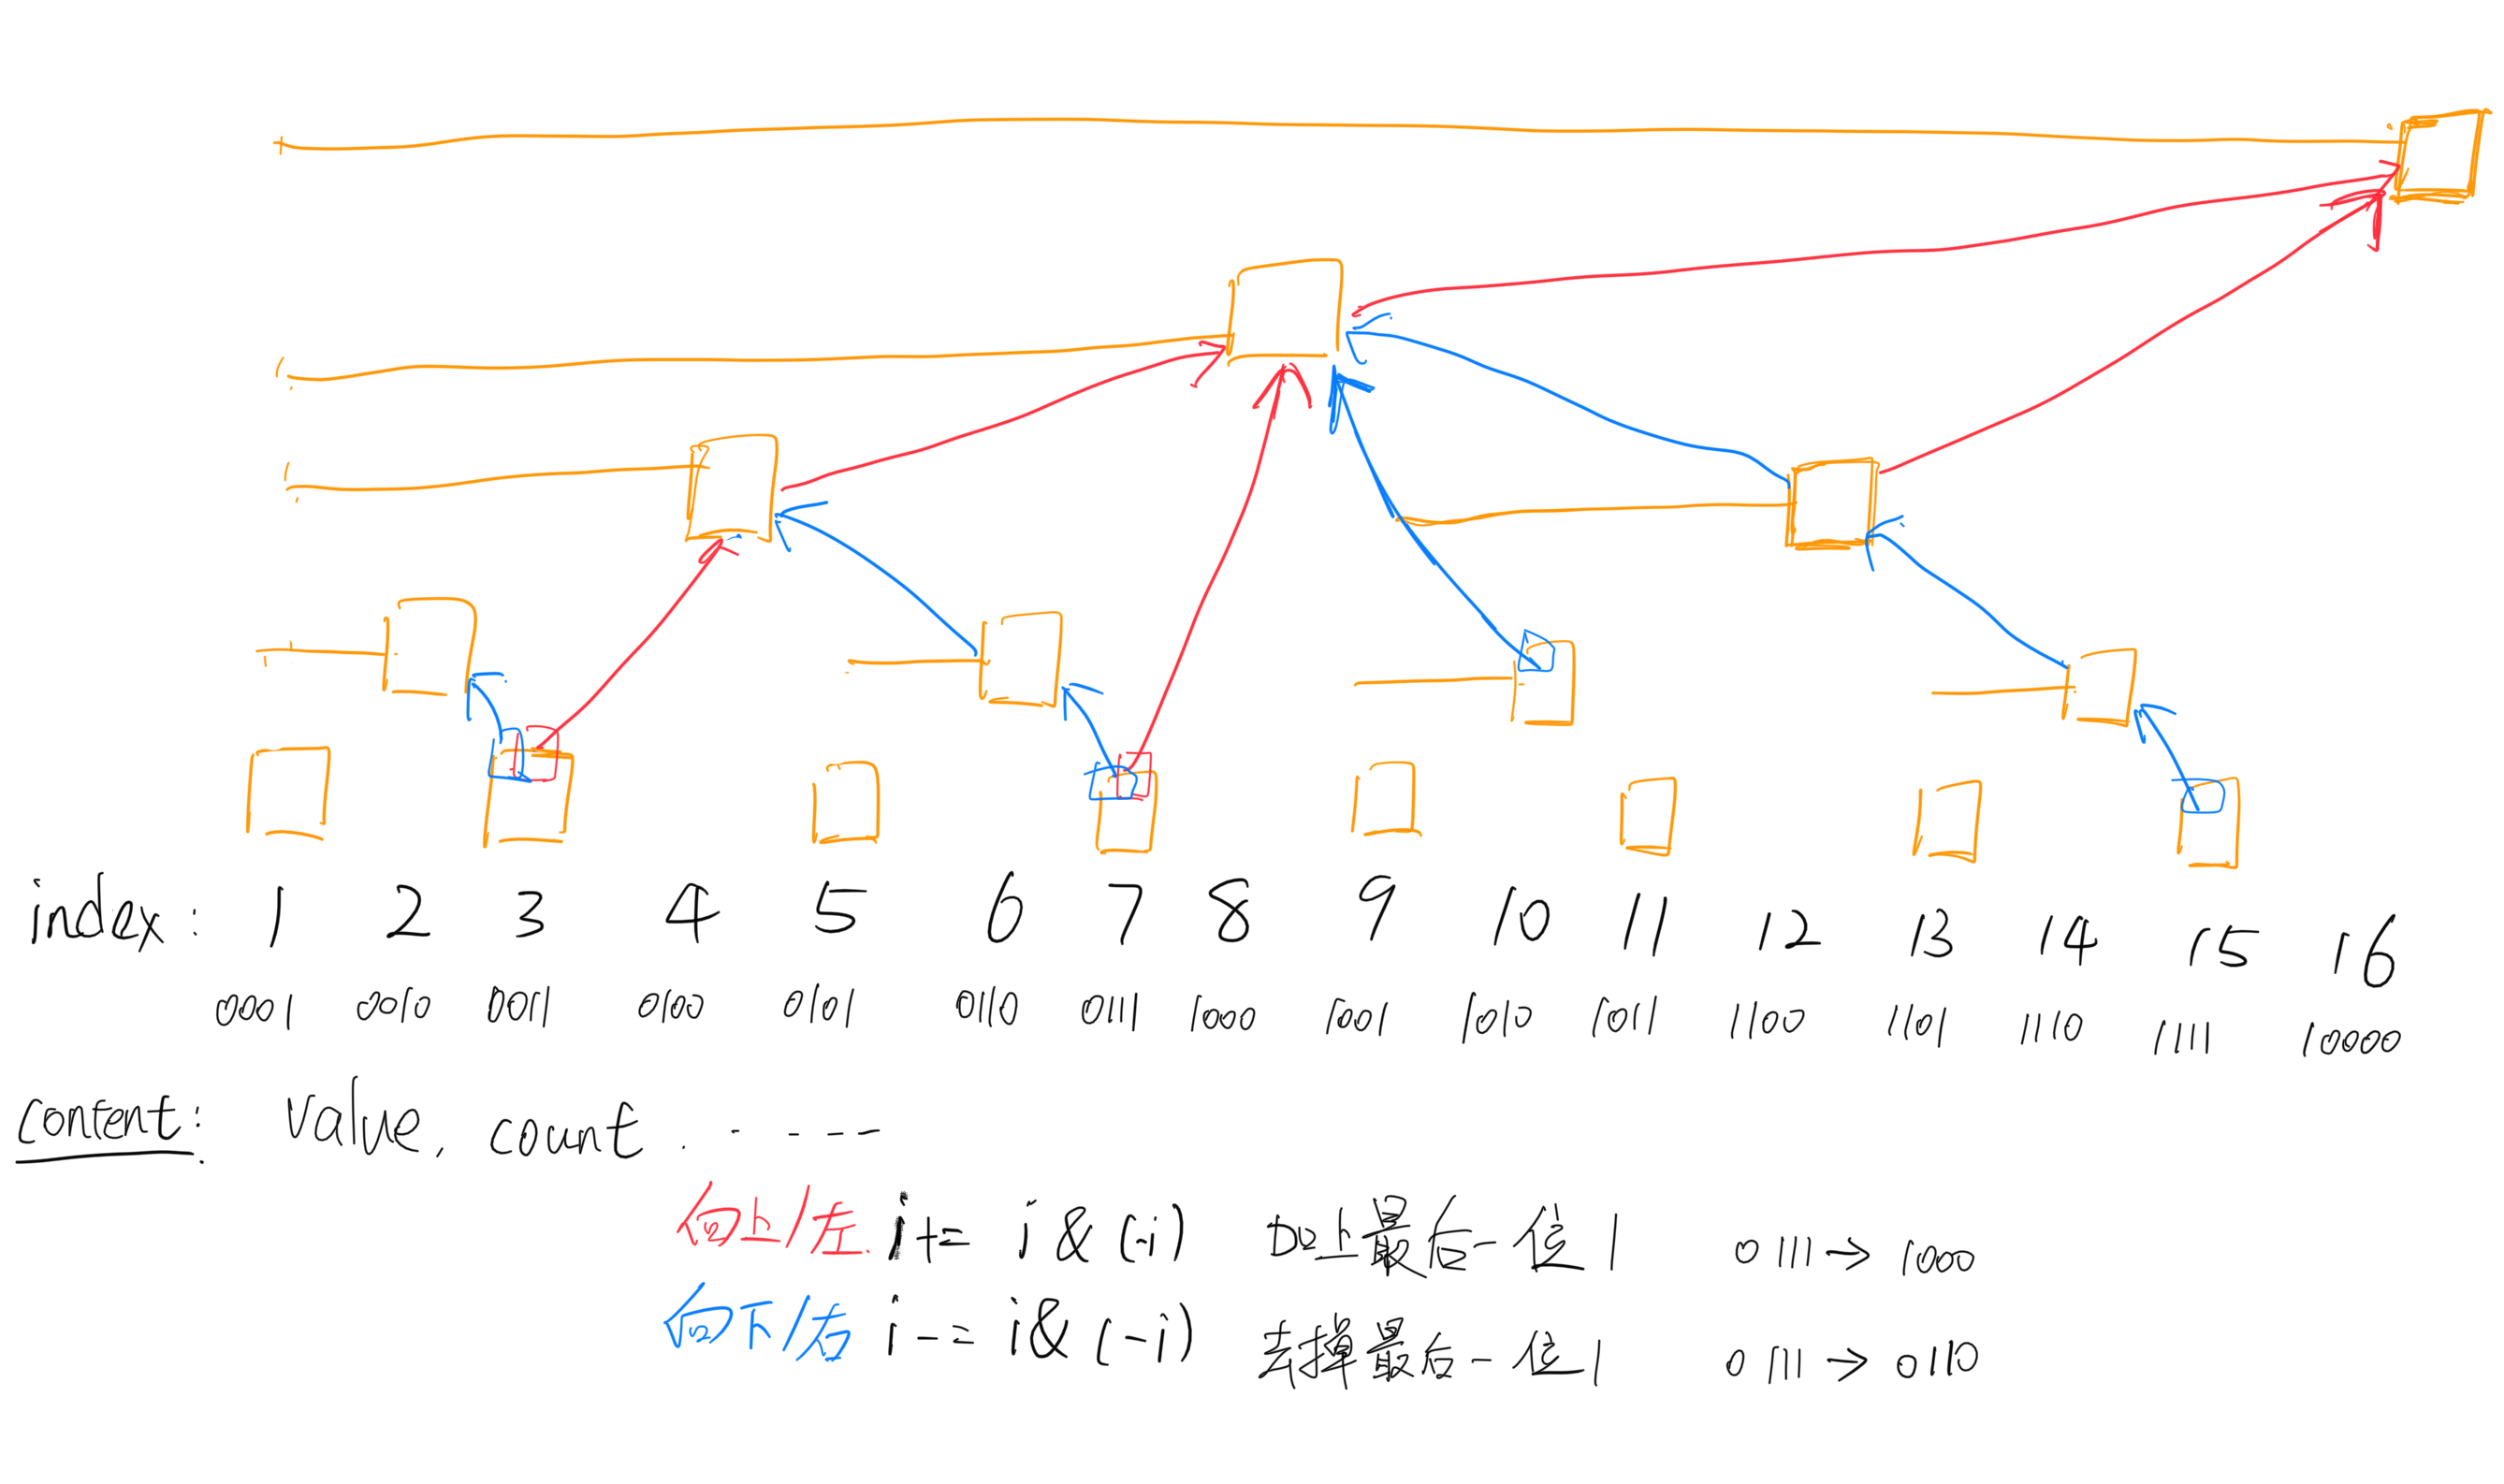 index: 1 2 3 4 5 6 7 8 9 10 11 12 13 14 15 16
0001 0010 0011 0100 0101 0110 0111 1000 1001 1010 1011 1100 1101 1110 1111 10000
content: Value, count. - - - - -
向上/左. i+= i & (-i) 加上最后一位1 0111 → 1000
向下/右 i-= i & (-i) 去掉最后一位1 0111 → 0110